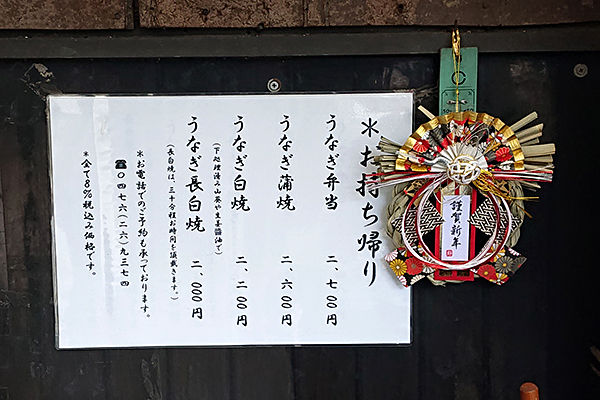 ＊お持ち帰り
うなぎ弁当 二、七〇〇円
うなぎ蒲焼 二、六〇〇円
うなぎ白焼 二、二〇〇円
(下処理済み山葵や生姜醤油で)
うなぎ長白焼 二、〇〇〇円
(長白焼は、三十分程お時間を頂戴きます。)
＊お電話でのご予約も承っております。
☎〇四七六(二六)九三七四
＊全て8%税込み価格です。
謹賀新年